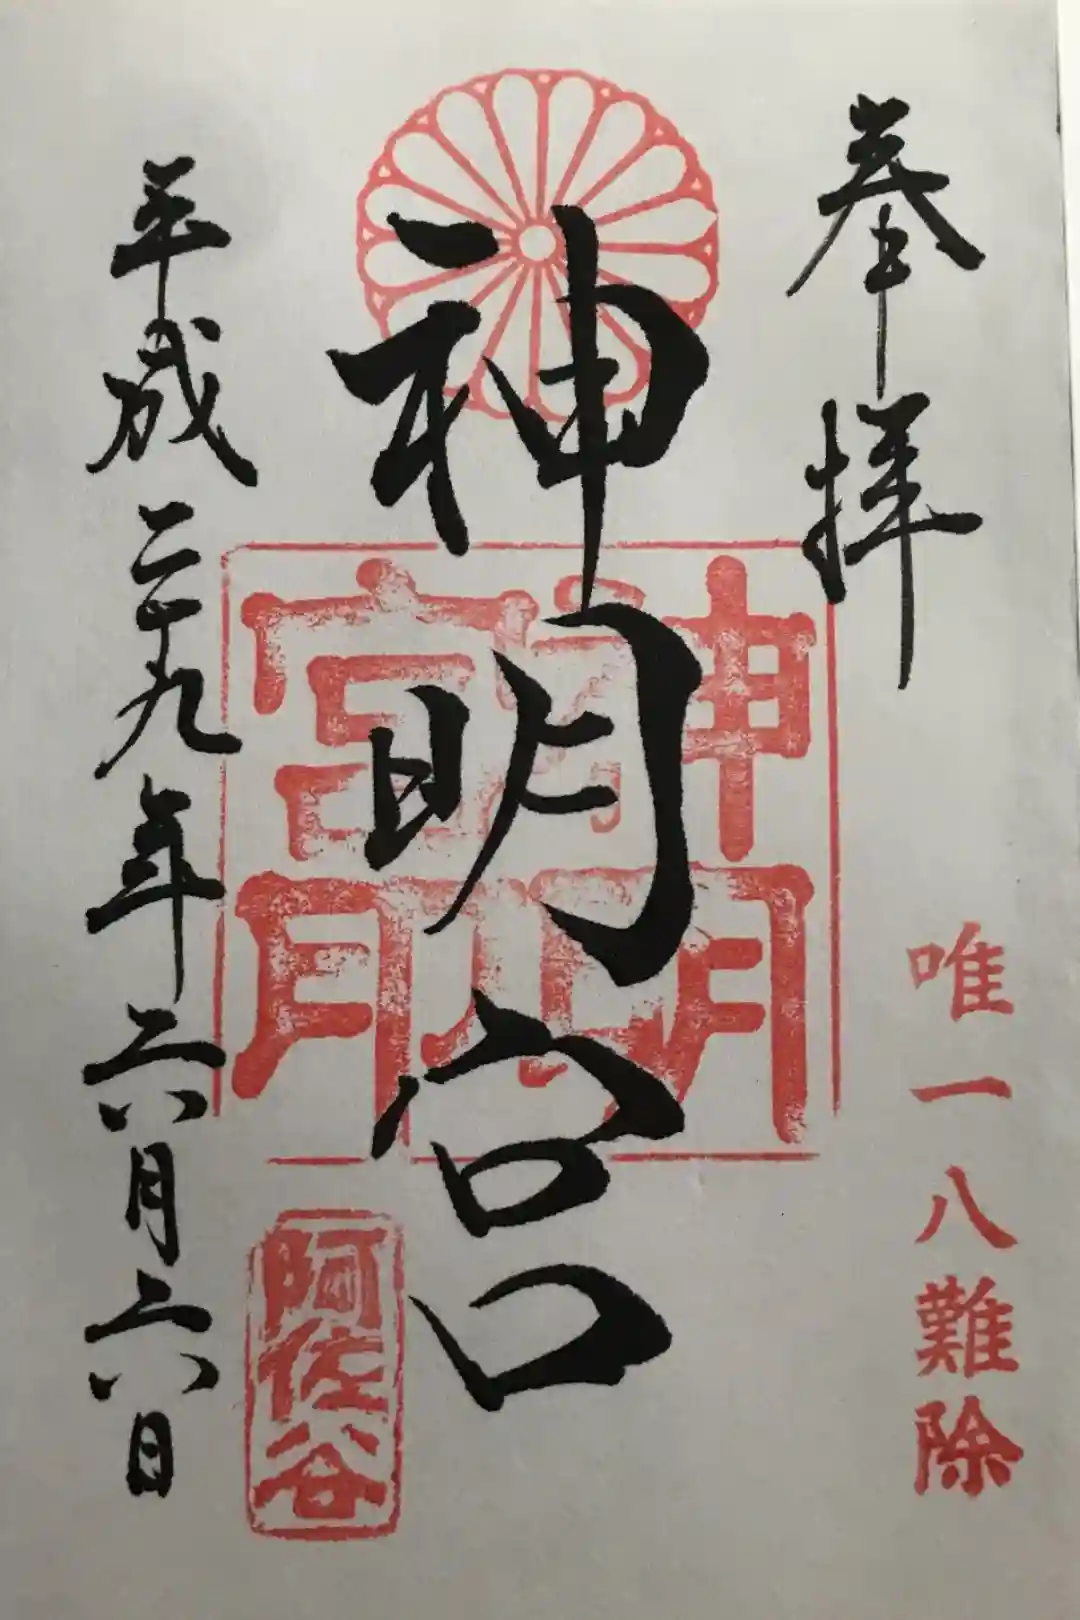 奉拝
唯一八難除
神明宮
神明宮
阿佐谷
平成二十九年六月六日